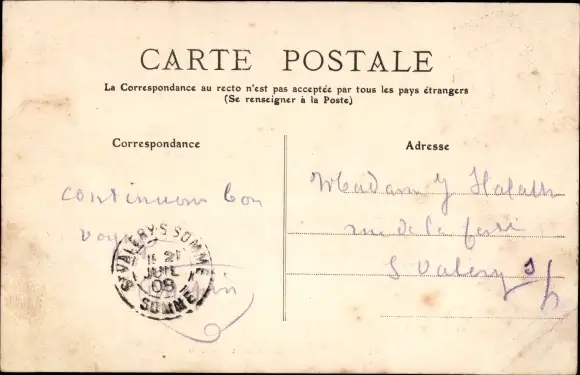 CARTE POSTALE
La Correspondance au recto n'est pas acceptée par tous les pays étrangers
(Se renseigner à la Poste)
Correspondance
Adresse
continuons bon
Madam
rue de la
S Valery s/
ST VALERY-S-SOMME
21
JUIL
08
SOMME